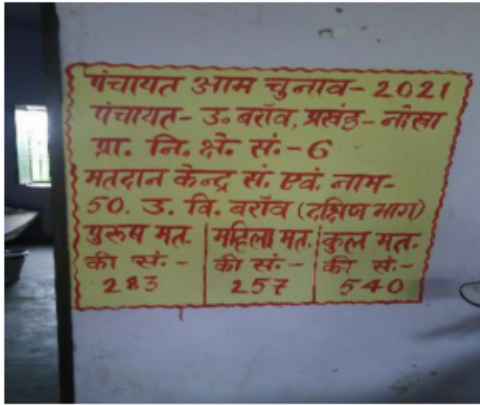 पंचायत आम चुनाव - 2021
पंचायत - उ. बराँव, प्रखंड - नोखा
प्रा. नि. क्षे. सं. - 6
मतदान केन्द्र सं. एवं. नाम -
50. उ. वि. बराँव (दक्षिण भाग)
पुरुष मत. की सं. - 283
महिला मत. की सं. - 257
कुल मत. की सं. - 540